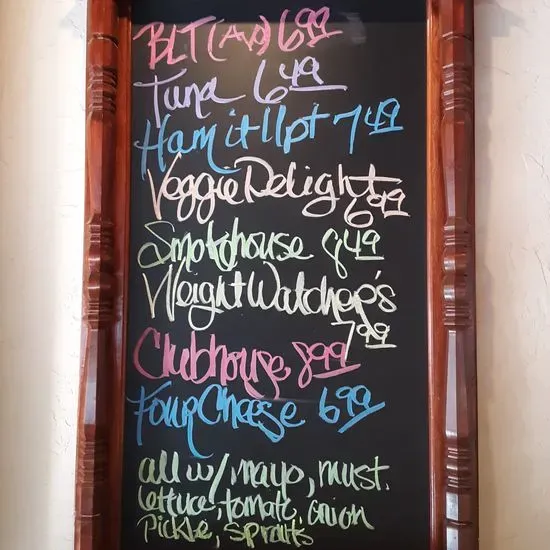 BLT (Avo) 6.99
Tuna 6.49
Ham it Upt 7.49
Veggie Delight
6.99
Smokehouse 8.49
Weight Watcher's
7.99
Clubhouse 8.99
Four Cheese 6.99
all w/ mayo, must.
lettuce, tomato, onion
pickle, sprouts